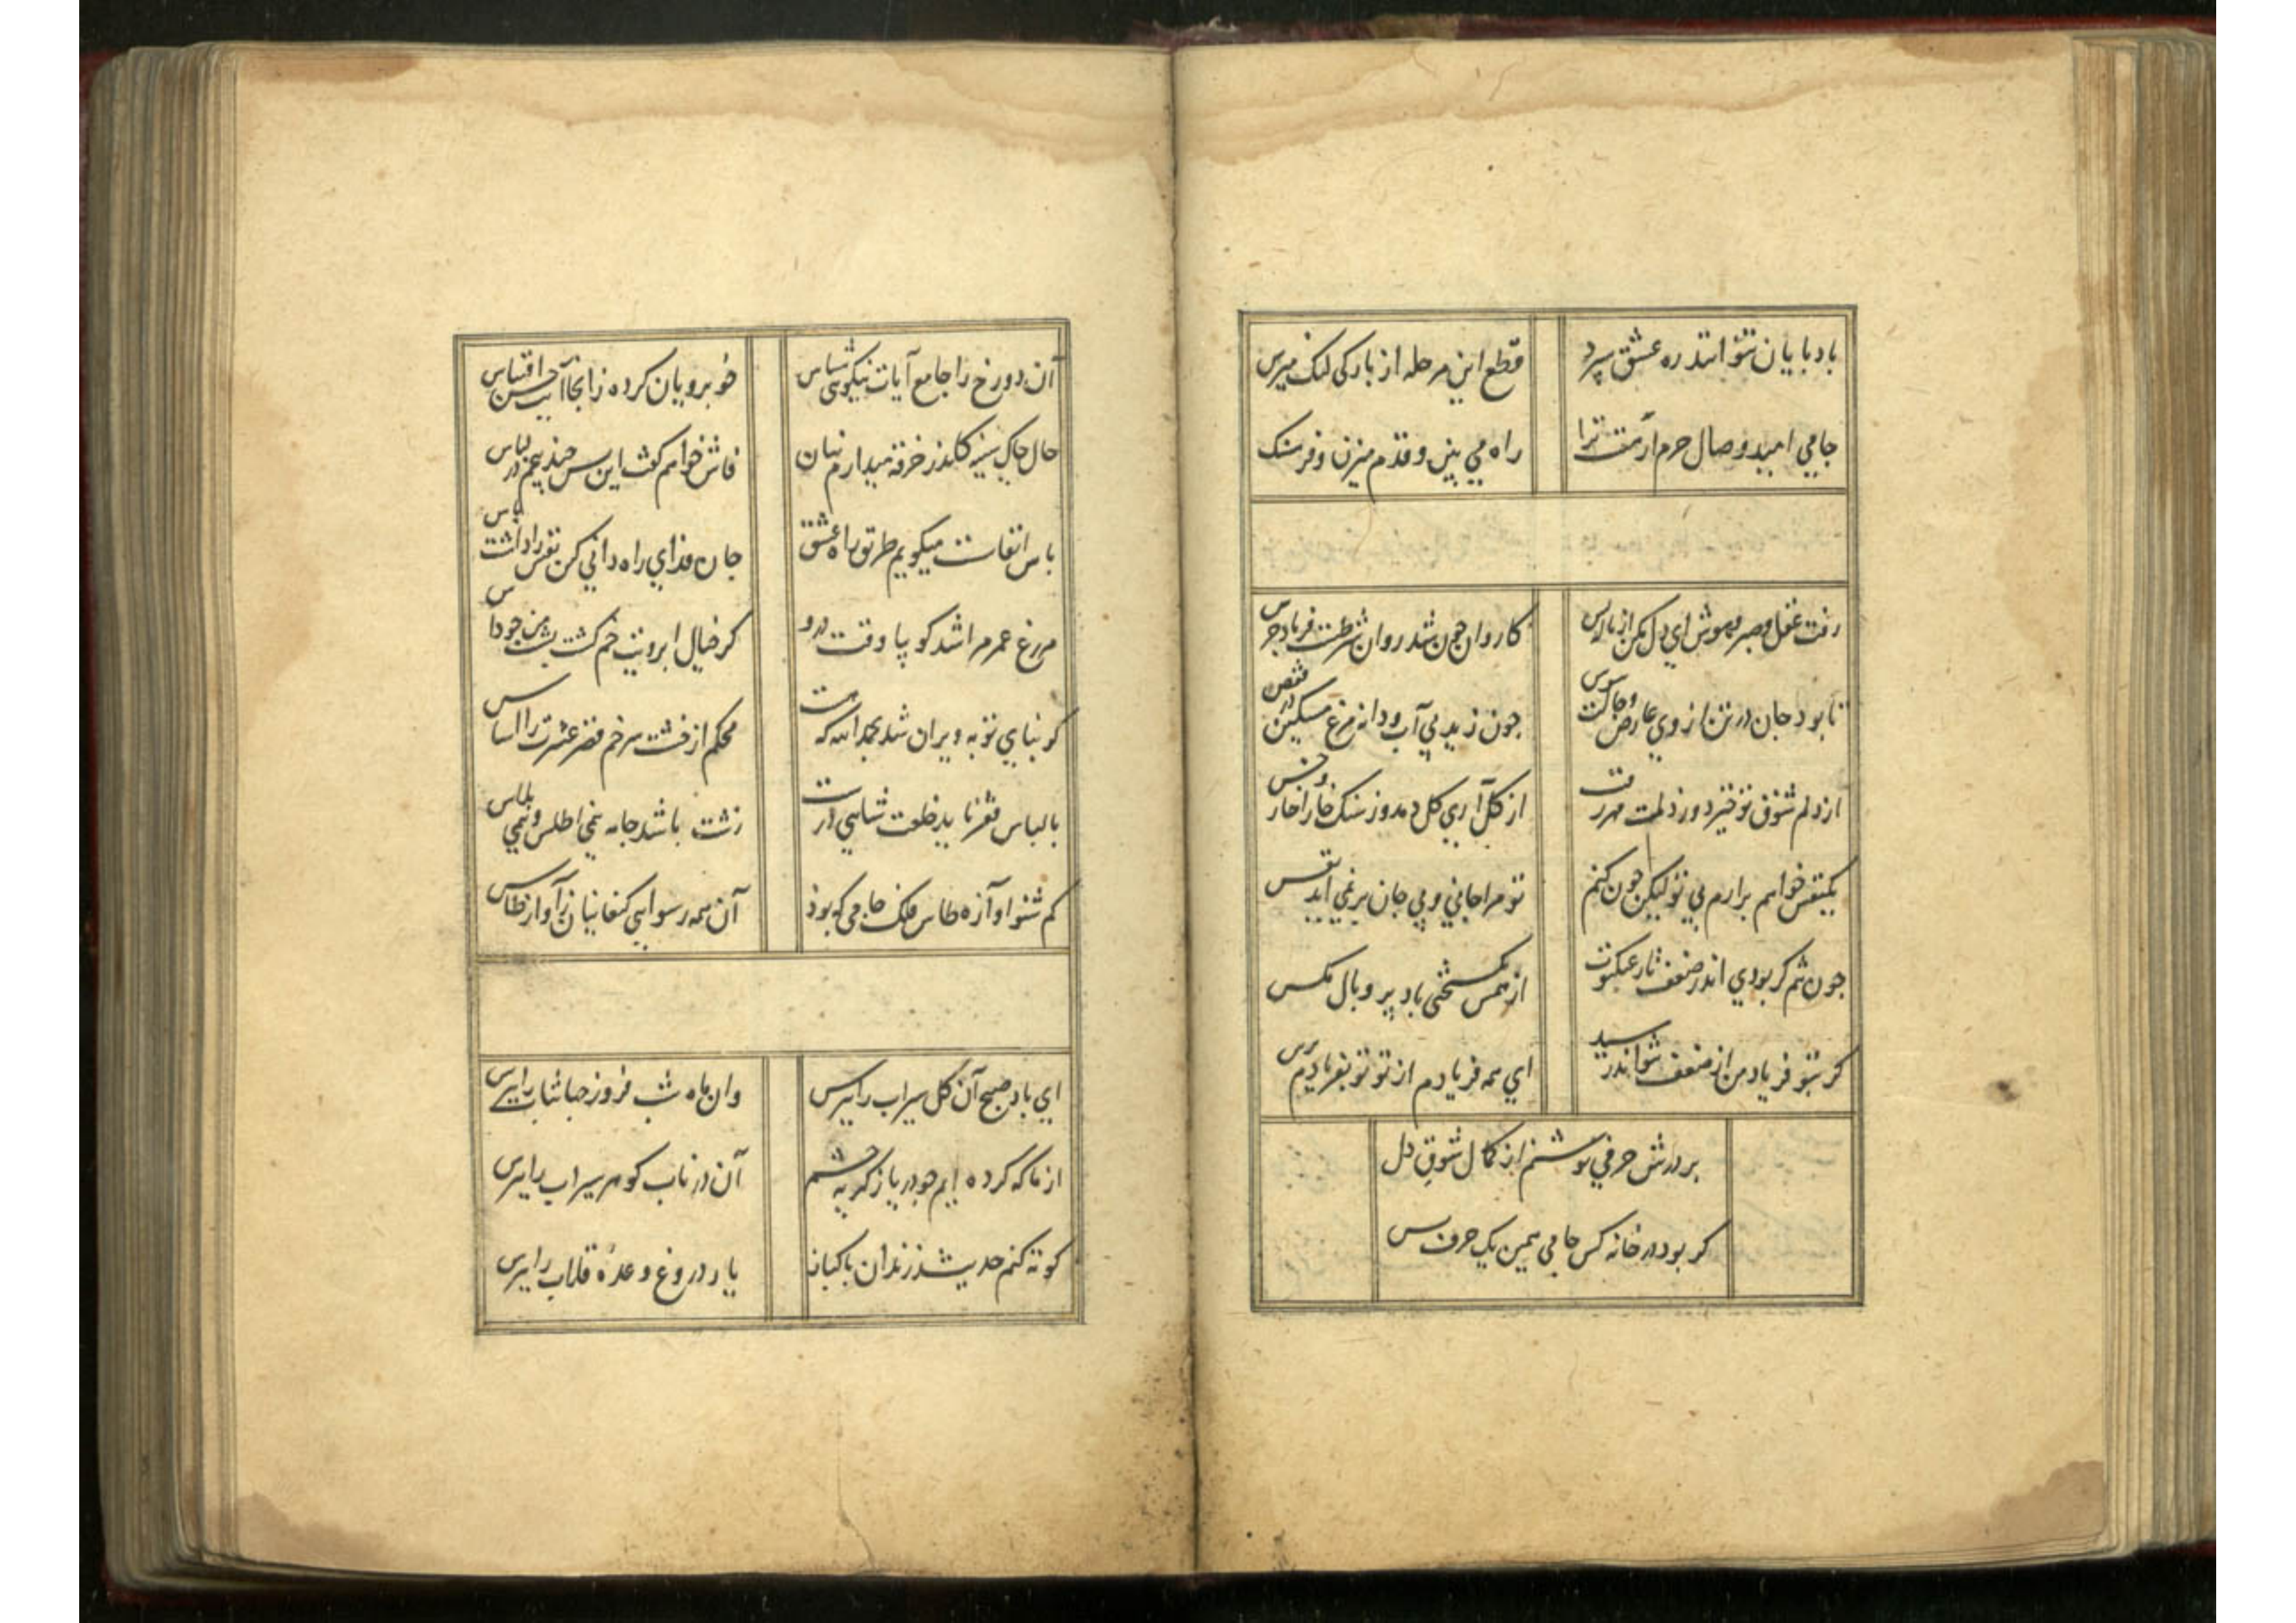 بادبایان نتوانند ره عشق سپرد
قطع این مرحله از بارکی لنک مپرس
جامی امید وصال حرم ارهست ترا
راه می بین و قدم میزن و فرسنک مپرس
رفت عقل و صبر و هوش ای دل مکن از ناله بس
کاروان چون شد روان شرطست فریاد جرس
تا بود جان در تن از روی عارض و خالت
چون زید بی آب و دانه مرغ مسکین در قفس
از دلم شوق تو خیزد وز دلت مهر رقت
از کل آری کل دمد وز سنک خارا خار و خس
یکنفس خواهم برارم بی تو لیکن چون کنم
تو مرا جانی و بی جان بر نمی اید نفس
چون تنم کر بودی اندر ضعف تار عنکبوت
از هم بکسستی باد پر و بال مکس
کر بتو فریاد من از ضعف نتواند رسید
ای همه فریادم از تو تو بفریادم برس
بر درش حرفی نوشتم از کمال شوق دل
کر بود در خانه کس جامی همین یک حرف بس
آن دو رخ را جامع آیات نیکویی شناس
خوبرویان کرده زانجا آیت حسن اقتباس
حال چاک سینه کاندر خرقه میدارم نهان
فاش خواهم کفت این سر چند پیچم در لباس
پاس انفاست میکویم طریق راه عشق
جان فدای راه دانی کن نفس را داشت پاس
مرغ عمرم را شد کویا وقت درو
کر خیال ابرویت خم کشت پشت من چو داس
کو بنای توبه ویران شد بحمد الله که هست
محکم از خشت سر خم قصر عشرت را اساس
با لباس فقر ناید خلعت شاهی درست
زشت باشد جامه نیمی اطلس و نیمی پلاس
کم شنو آوازه طاس فلک جامی که بود
آن همه رسوایی کنعانیان ز آواز طاس
ای باد صبح آن کل سیراب را بپرس
وان ماه شب فروز جهانتاب را بپرس
از ما که کرده ایم چو دریا ز کریه چشم
آن در ناب کوهر سیراب را بپرس
کوته کنم حدیث ز رندان پاکباز
یار دروغ وعده قلاب را بپرس